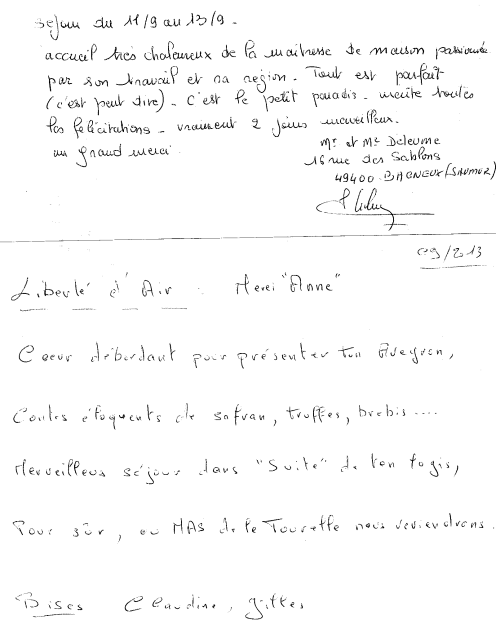 séjour du 11/9 au 13/9 -
accueil très chaleureux de la maitresse de maison passionnée
par son travail et sa région. Tout est parfait
(c'est peut dire). c'est le petit paradis. mérite toutes
les félicitations. vraiment 2 jours merveilleux.
un grand merci.
Mr et Me Deleume
16 rue des Sablons
49400 BAGNEUX (SAUMUR)
09/213
Liberté d'Air : Merci "Anne"
Coeur débordant pour présenter ton Aveyron,
Contes éloquents de safran, truffes, brebis....
Merveilleux séjour dans "Suite" de ton logis,
Pour sûr, au MAS de la Tourette nous reviendrons.
Bises Claudine, Gilles